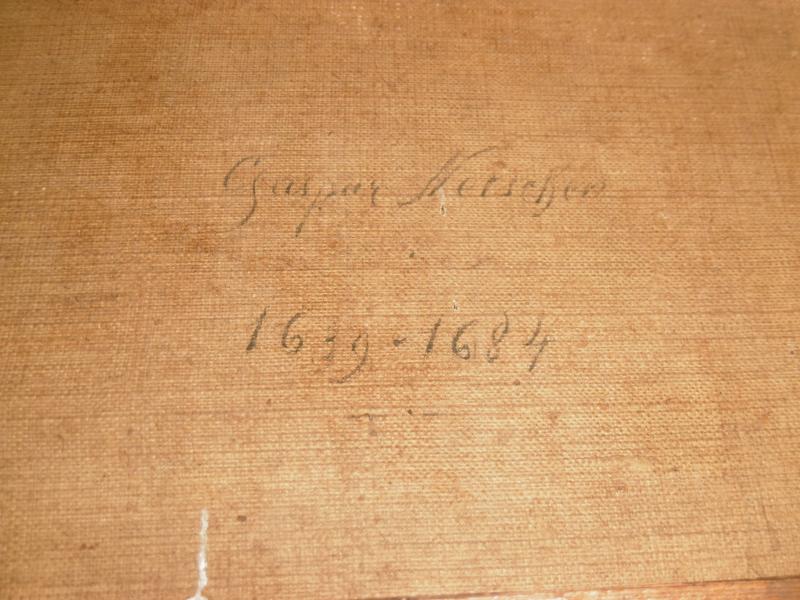 Caspar Netscher
1639-1684